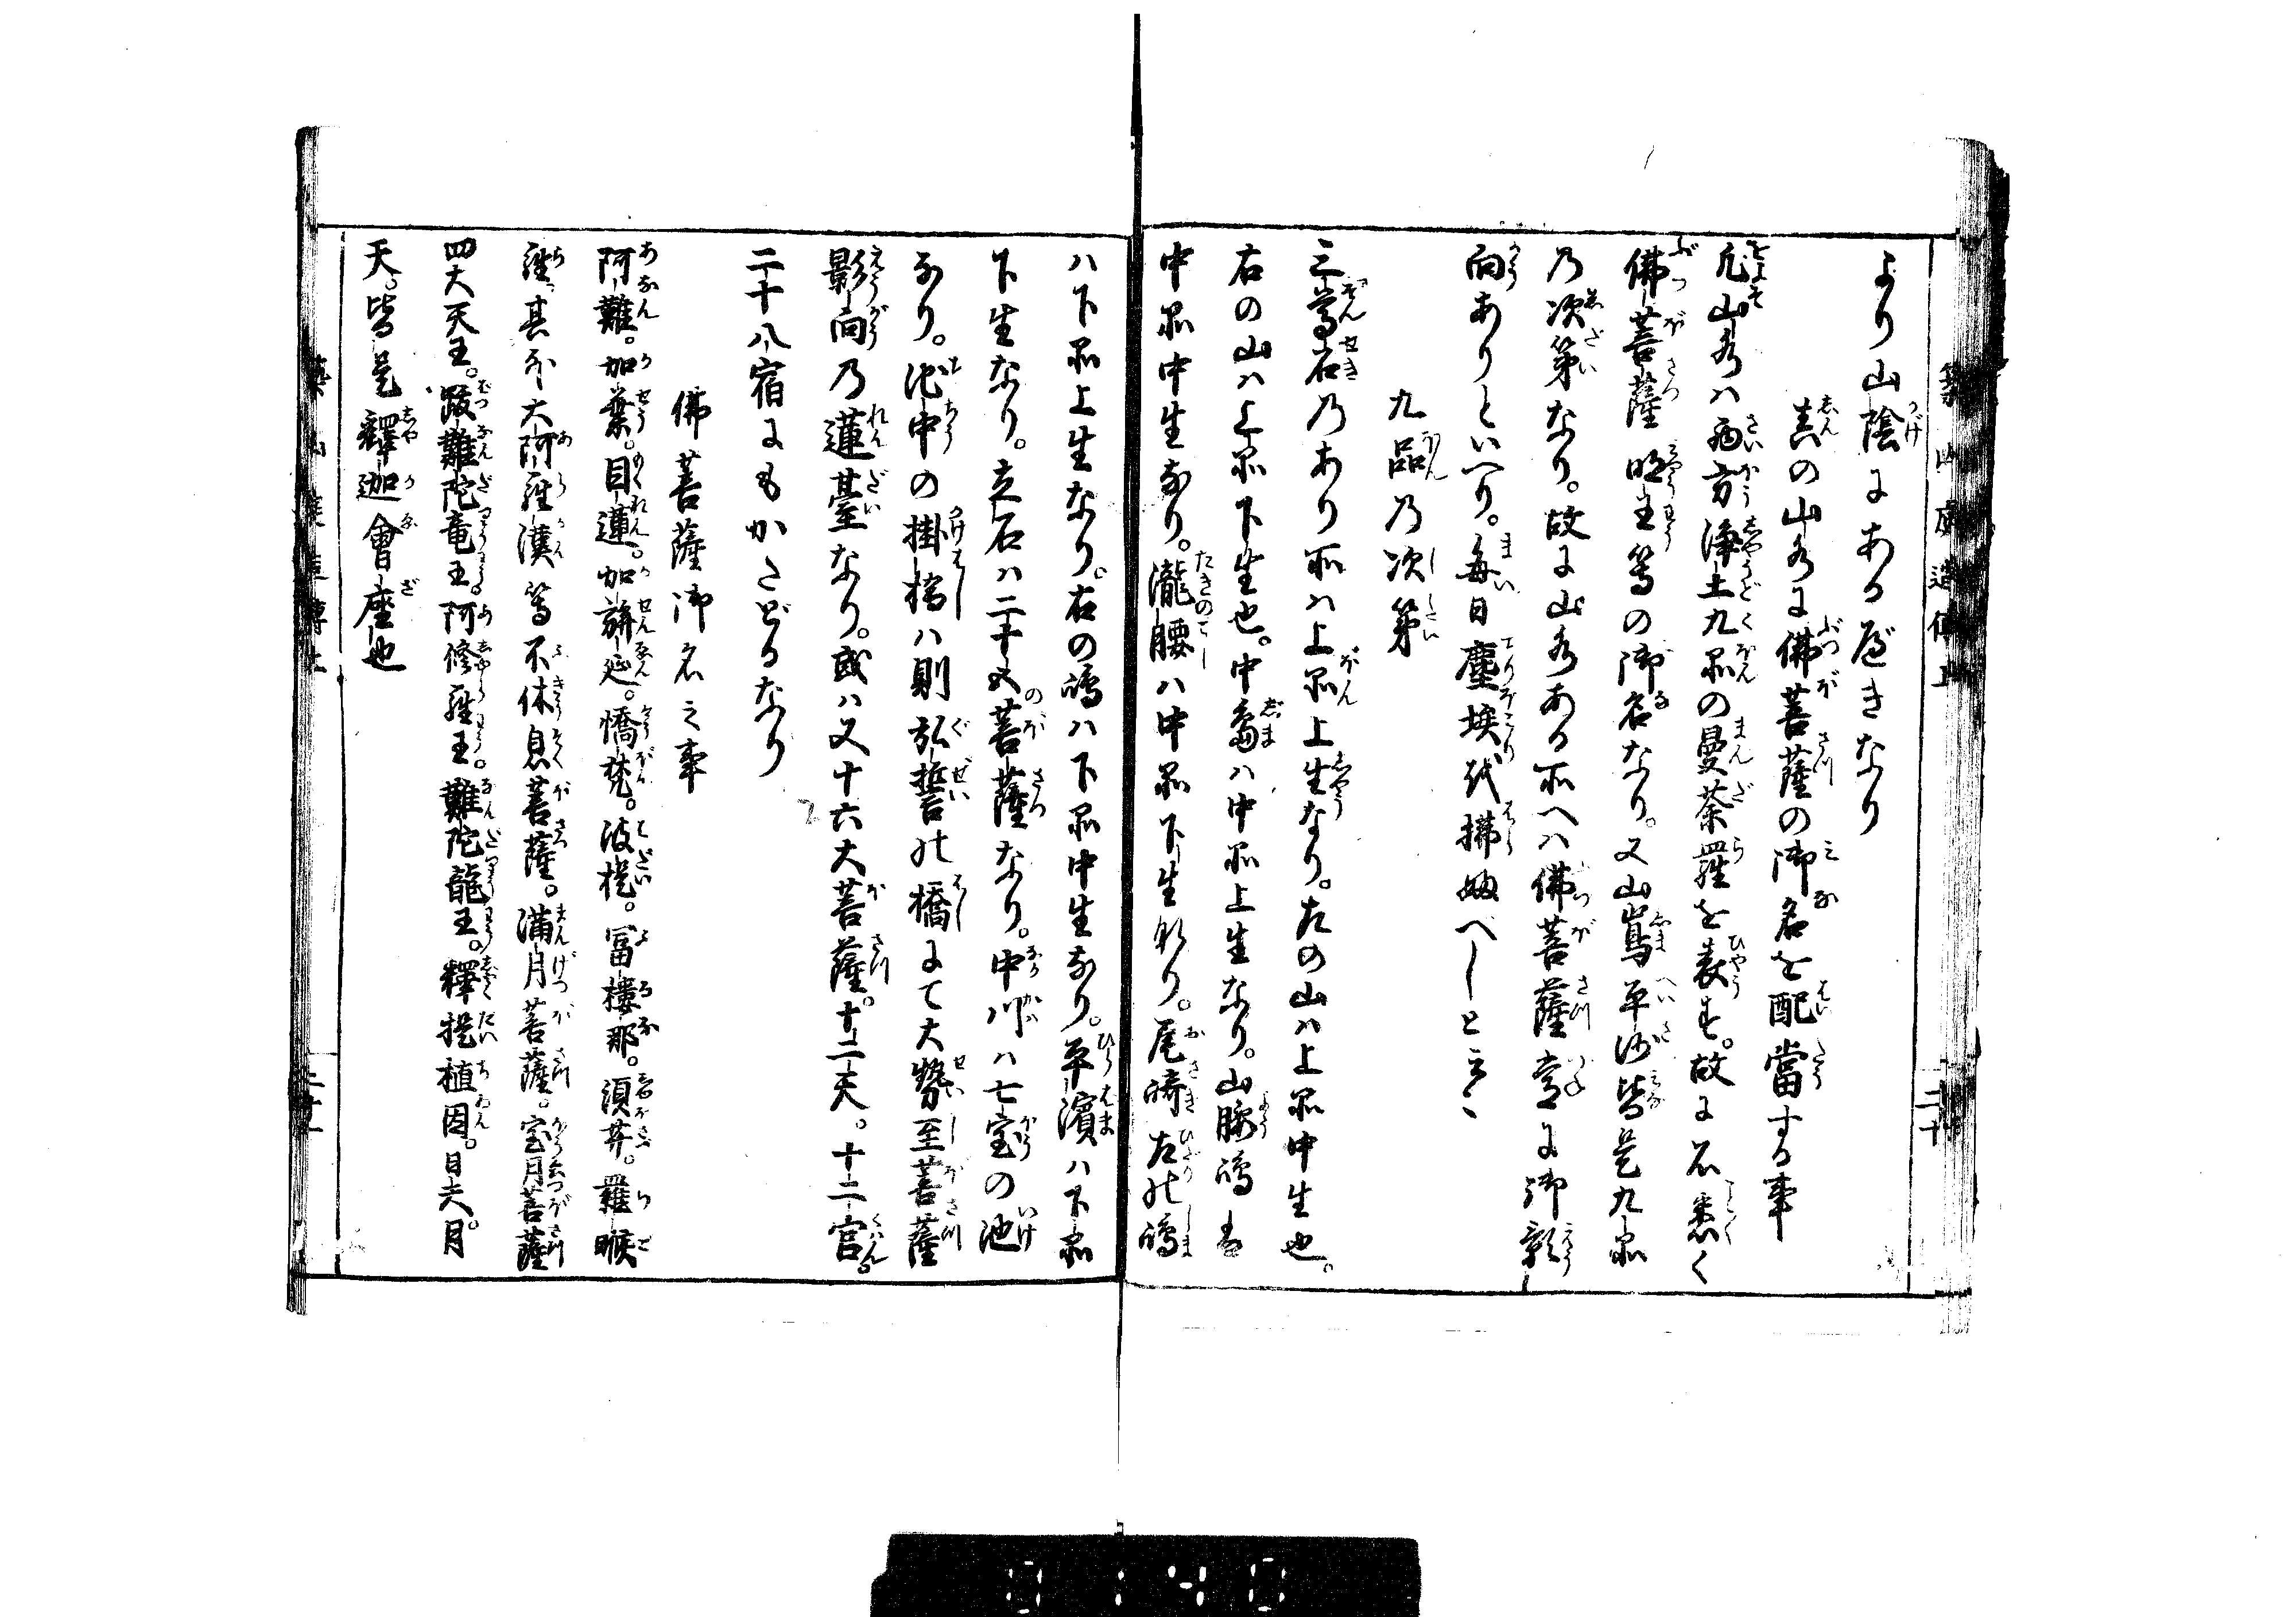 より山陰にあるべきなり
真の山水に佛菩薩の御名を配當する事
凡山水ハ西方浄土九品の曼荼羅を表す。故に石悉く
佛菩薩明王等の御名なり。又山嶌平沙皆是九品
乃次第なり。故に山水ある所へハ佛菩薩常に御影
向ありといへり。毎日塵埃を拂ふべしと云々
九品乃次第
三尊石乃あり所ハ上品上生なり。左の山ハ上品中生也。
右の山ハ上品下生也。中島ハ中品上生なり。山腰嶋は
中品中生なり。瀧腰ハ中品下生なり。尾崎左の嶋
ハ下品上生なり。右の嶋ハ下品中生なり。平濱ハ下品
下生なり。立石ハ二十五菩薩なり。中川ハ七宝の池
なり。池中の掛橋ハ則弘誓の橋にて大勢至菩薩
影向乃蓮臺なり。或ハ又十六大菩薩。十二天。十二宮。
二十八宿にもかたどるなり
佛菩薩御名之事
阿難。加葉。目蓮。加旃延。憍梵。波提。冨樓那。須菩。羅睺
羅。其外大阿羅漢等不休息菩薩。満月菩薩。宝月菩薩
四大天王。跋難陀竜王。阿修羅王。難陀龍王。釋提植因。日天。月
天。皆是釋迦會座也
築山庭造傳上
二十